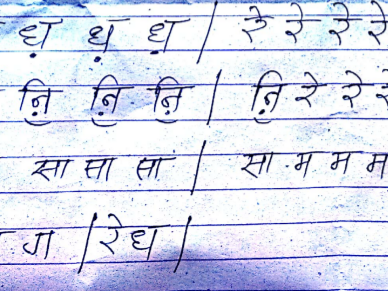 ध़ ध़ ध़ | रे रे रे रे
ऩि ऩि ऩि | ऩि रे रे रे
सा सा सा | सा म म म
ग | रेध |